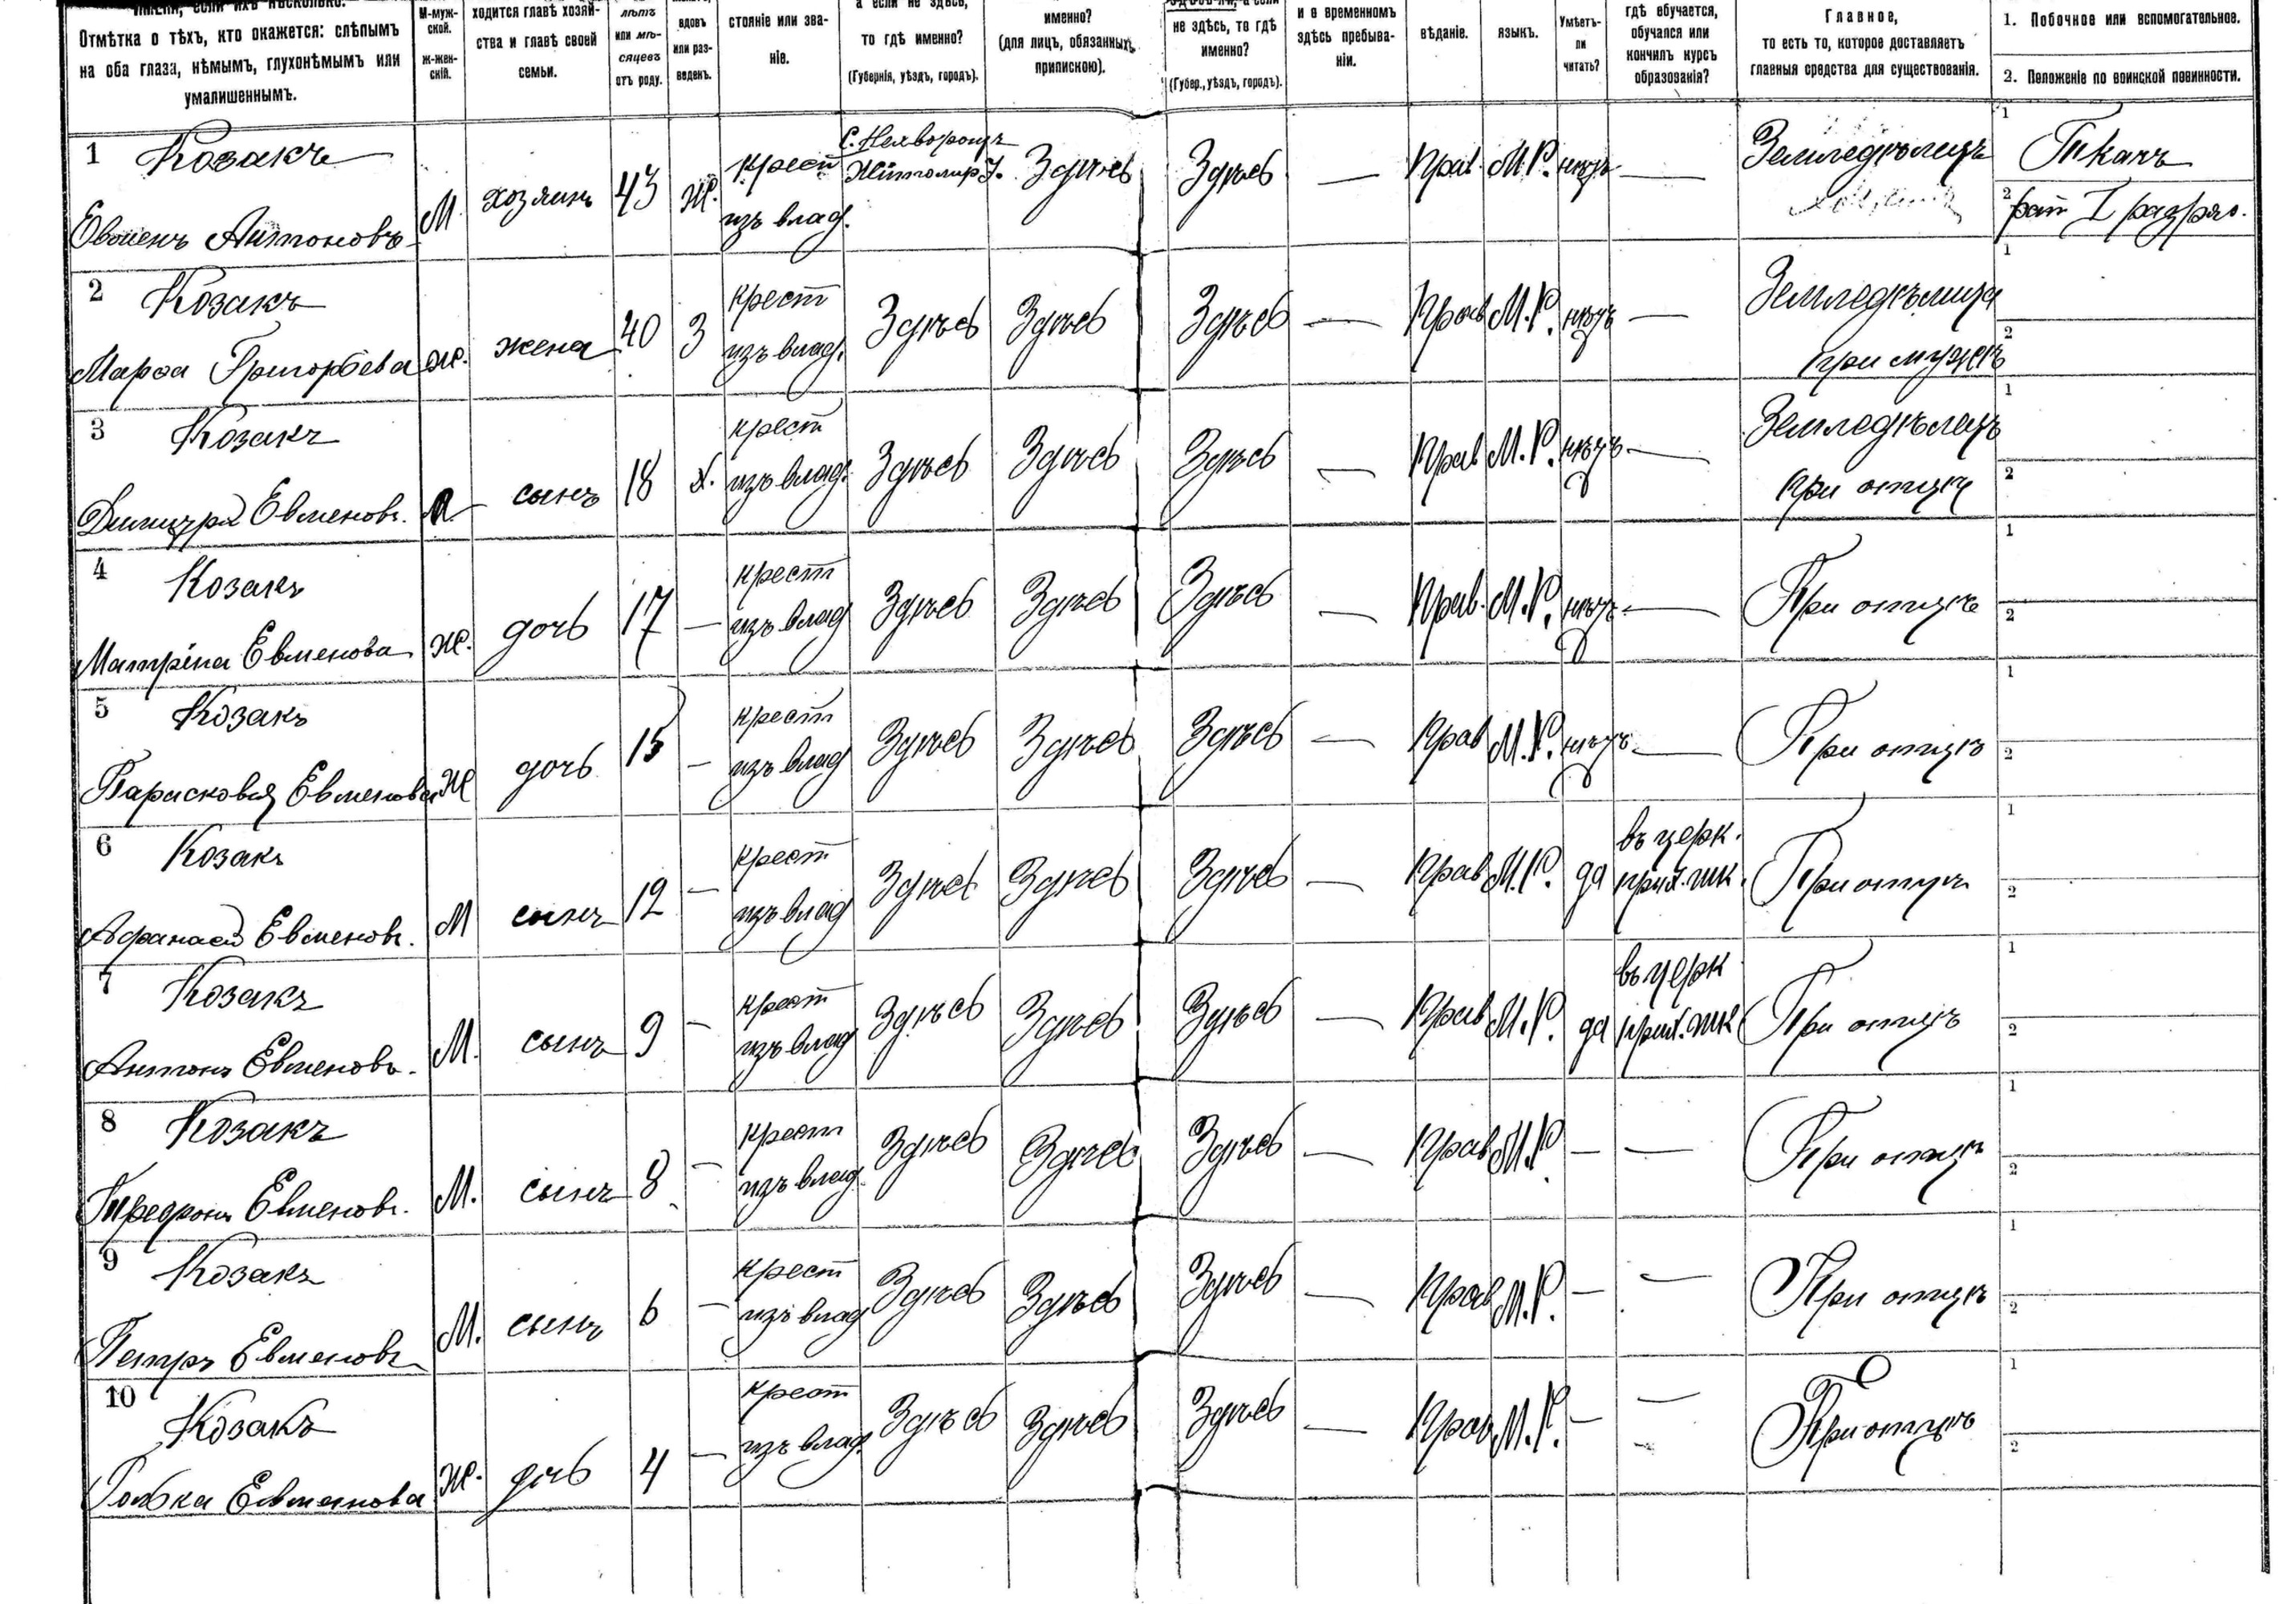 Отмѣтка о тѣхъ, кто окажется: слѣпымъ
на оба глаза, нѣмымъ, глухонѣмымъ или
умалишеннымъ.
М-муж-
ской.
Ж-жен-
скій.
ходится главѣ хозяй-
ства и главѣ своей
семьи.
лѣтъ
или мѣ-
сяцевъ
отъ роду.
вдовъ
или раз-
веденъ.
стояніе или зва-
ніе.
а если не здѣсь,
то гдѣ именно?
(Губернія, уѣздъ, городъ).
именно?
(для лицъ, обязанныхъ
припискою).
не здѣсь, то гдѣ
именно?
(Губер., уѣздъ, городъ).
и о временномъ
здѣсь пребыва-
ніи.
вѣданіе.
языкъ.
Умѣетъ-
ли
читать?
гдѣ обучается,
обучался или
кончилъ курсъ
образованія?
Главное,
то есть то, которое доставляетъ
главныя средства для существованія.
1. Побочное или вспомогательное.
2. Положеніе по воинской повинности.
1 Козакъ
Евменъ Антоновъ
М. хозяинъ 43 Ж.
крест
изъ влад.
Житомир У.
Здѣсь Здѣсь — Прав. М.Р. нѣтъ —
Земледѣлецъ
1 Ткачъ
2 рат I разряд.
2 Козакъ
Марфа Григорьева
Ж. жена 40 З
крест
изъ влад.
Здѣсь Здѣсь Здѣсь — Прав М.Р. нѣтъ —
Земледѣлица
при мужѣ
1
2
3 Козакъ
Димитрій Евменовъ.
М сынъ 18 Х.
крест
изъ влад.
Здѣсь Здѣсь Здѣсь — Прав М.Р. нѣтъ —
Земледѣлецъ
при отцѣ
1
2
4 Козакъ
Матріна Евменова
Ж. дочь 17 —
крест
изъ влад
Здѣсь Здѣсь Здѣсь — Прав. М.Р. нѣтъ —
При отцѣ
1
2
5 Козакъ
Парасковія Евменова
Ж дочь 15 —
крест
изъ влад
Здѣсь Здѣсь Здѣсь — Прав М.Р. нѣтъ —
При отцѣ
1
2
6 Козакъ
Афанасій Евменовъ.
М сынъ 12 —
крест
изъ влад
Здѣсь Здѣсь Здѣсь — Прав М.Р. да
въ церк.
прих. шк.
При отцѣ
1
2
7 Козакъ
Антонъ Евменовъ.
М. сынъ 9 —
крест
изъ влад
Здѣсь Здѣсь Здѣсь — Прав М.Р. да
въ церк
прих. шк
При отцѣ
1
2
8 Козакъ
Трефонъ Евменовъ.
М. сынъ 8 —
крест
изъ влад.
Здѣсь Здѣсь Здѣсь — Прав М.Р. — —
При отцѣ
1
2
9 Козакъ
Петръ Евменовъ
М. сынъ 6 —
крест
изъ влад
Здѣсь Здѣсь Здѣсь — Прав М.Р. — —
При отцѣ
1
2
10 Козакъ
Евменова
Ж. дочь 4 —
крест
изъ влад.
Здѣсь Здѣсь Здѣсь — Прав М.Р. — —
При отцѣ
1
2